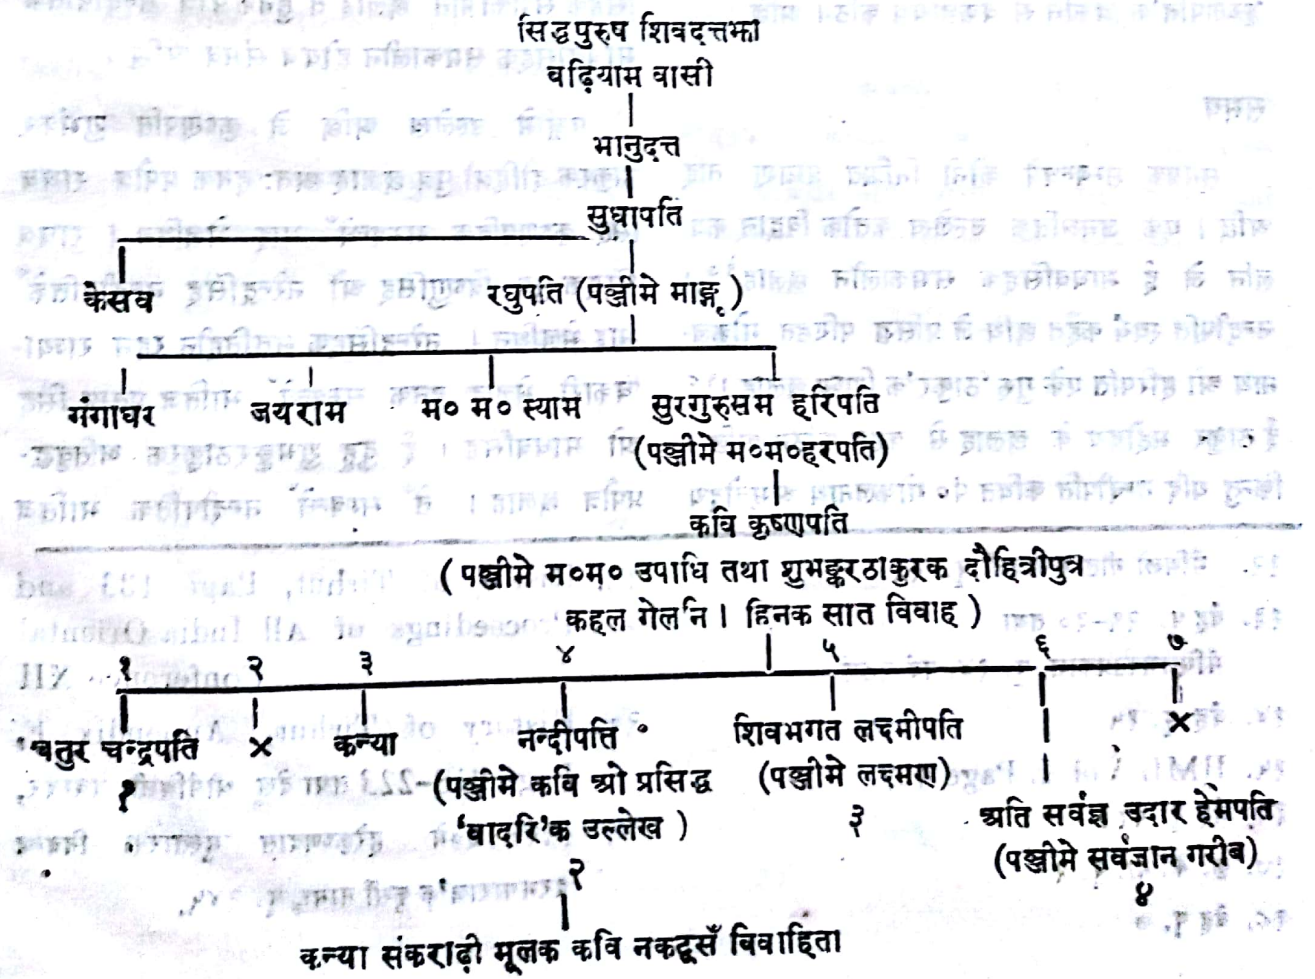 सिद्धपुरुष शिवदत्तझा
बढ़ियाम वासी
भानुदत्त
सुधापति
केसव रघुपति (पञ्जीमे माङ्गू)
गंगाधर जयराम म० म० स्याम सुरगुरुसम हरिपति
(पञ्जीमे म०म०हरपति)
कवि कृष्णपति
(पञ्जीमे म०म० उपाधि तथा शुभङ्करठाकुरक दौहित्रीपुत्र
कहल गेलनि। हिनक सात विवाह)
१ २ ३ ४ ५ ६ ७
चतुर चन्द्रपति × कन्या नन्दीपति शिवभगत लक्ष्मीपति ×
१ (पञ्जीमे कवि ओ प्रसिद्ध (पञ्जीमे लक्ष्मण)
'बादरि'क उल्लेख) ३ अति सर्वज्ञ उदार हेमपति
(पञ्जीमे सर्वजान गरीब)
२ ४
कन्या संकराढ़ी मूलक कवि नकटूसँ विवाहिता